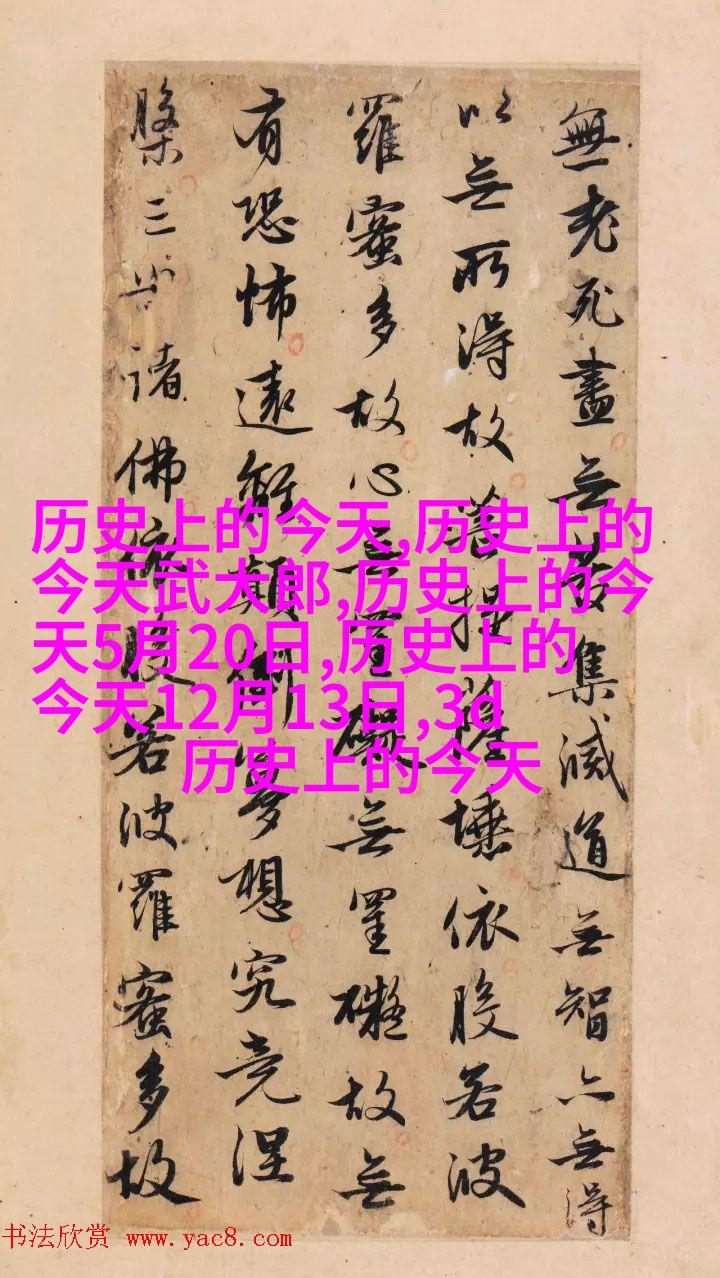 無老死盡无苦集滅道无智亦无得
以无所得故菩提薩埵依般若波
羅蜜多故心无罣礙无罣礙故无
有恐怖遠離顛倒夢想究竟涅
槃三世諸佛依般若波羅蜜多故
历史上的今天,历史上的
今天武大郎,历史上的今
天5月20日,历史上的
今天12月13日,3d
历史上的今天
书法欣赏 www.yac8.com